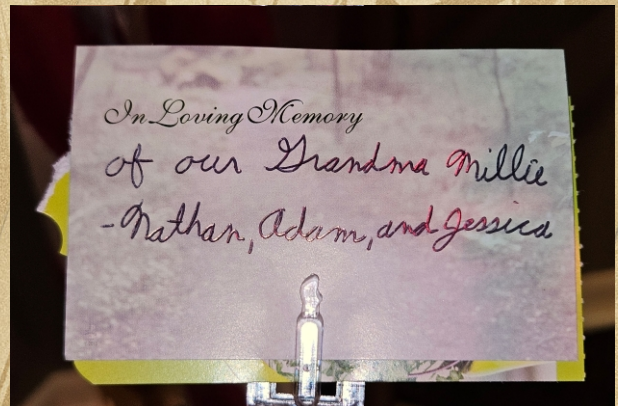 In Loving Memory
of our Grandma Millie
-Nathan, Adam, and Jessica